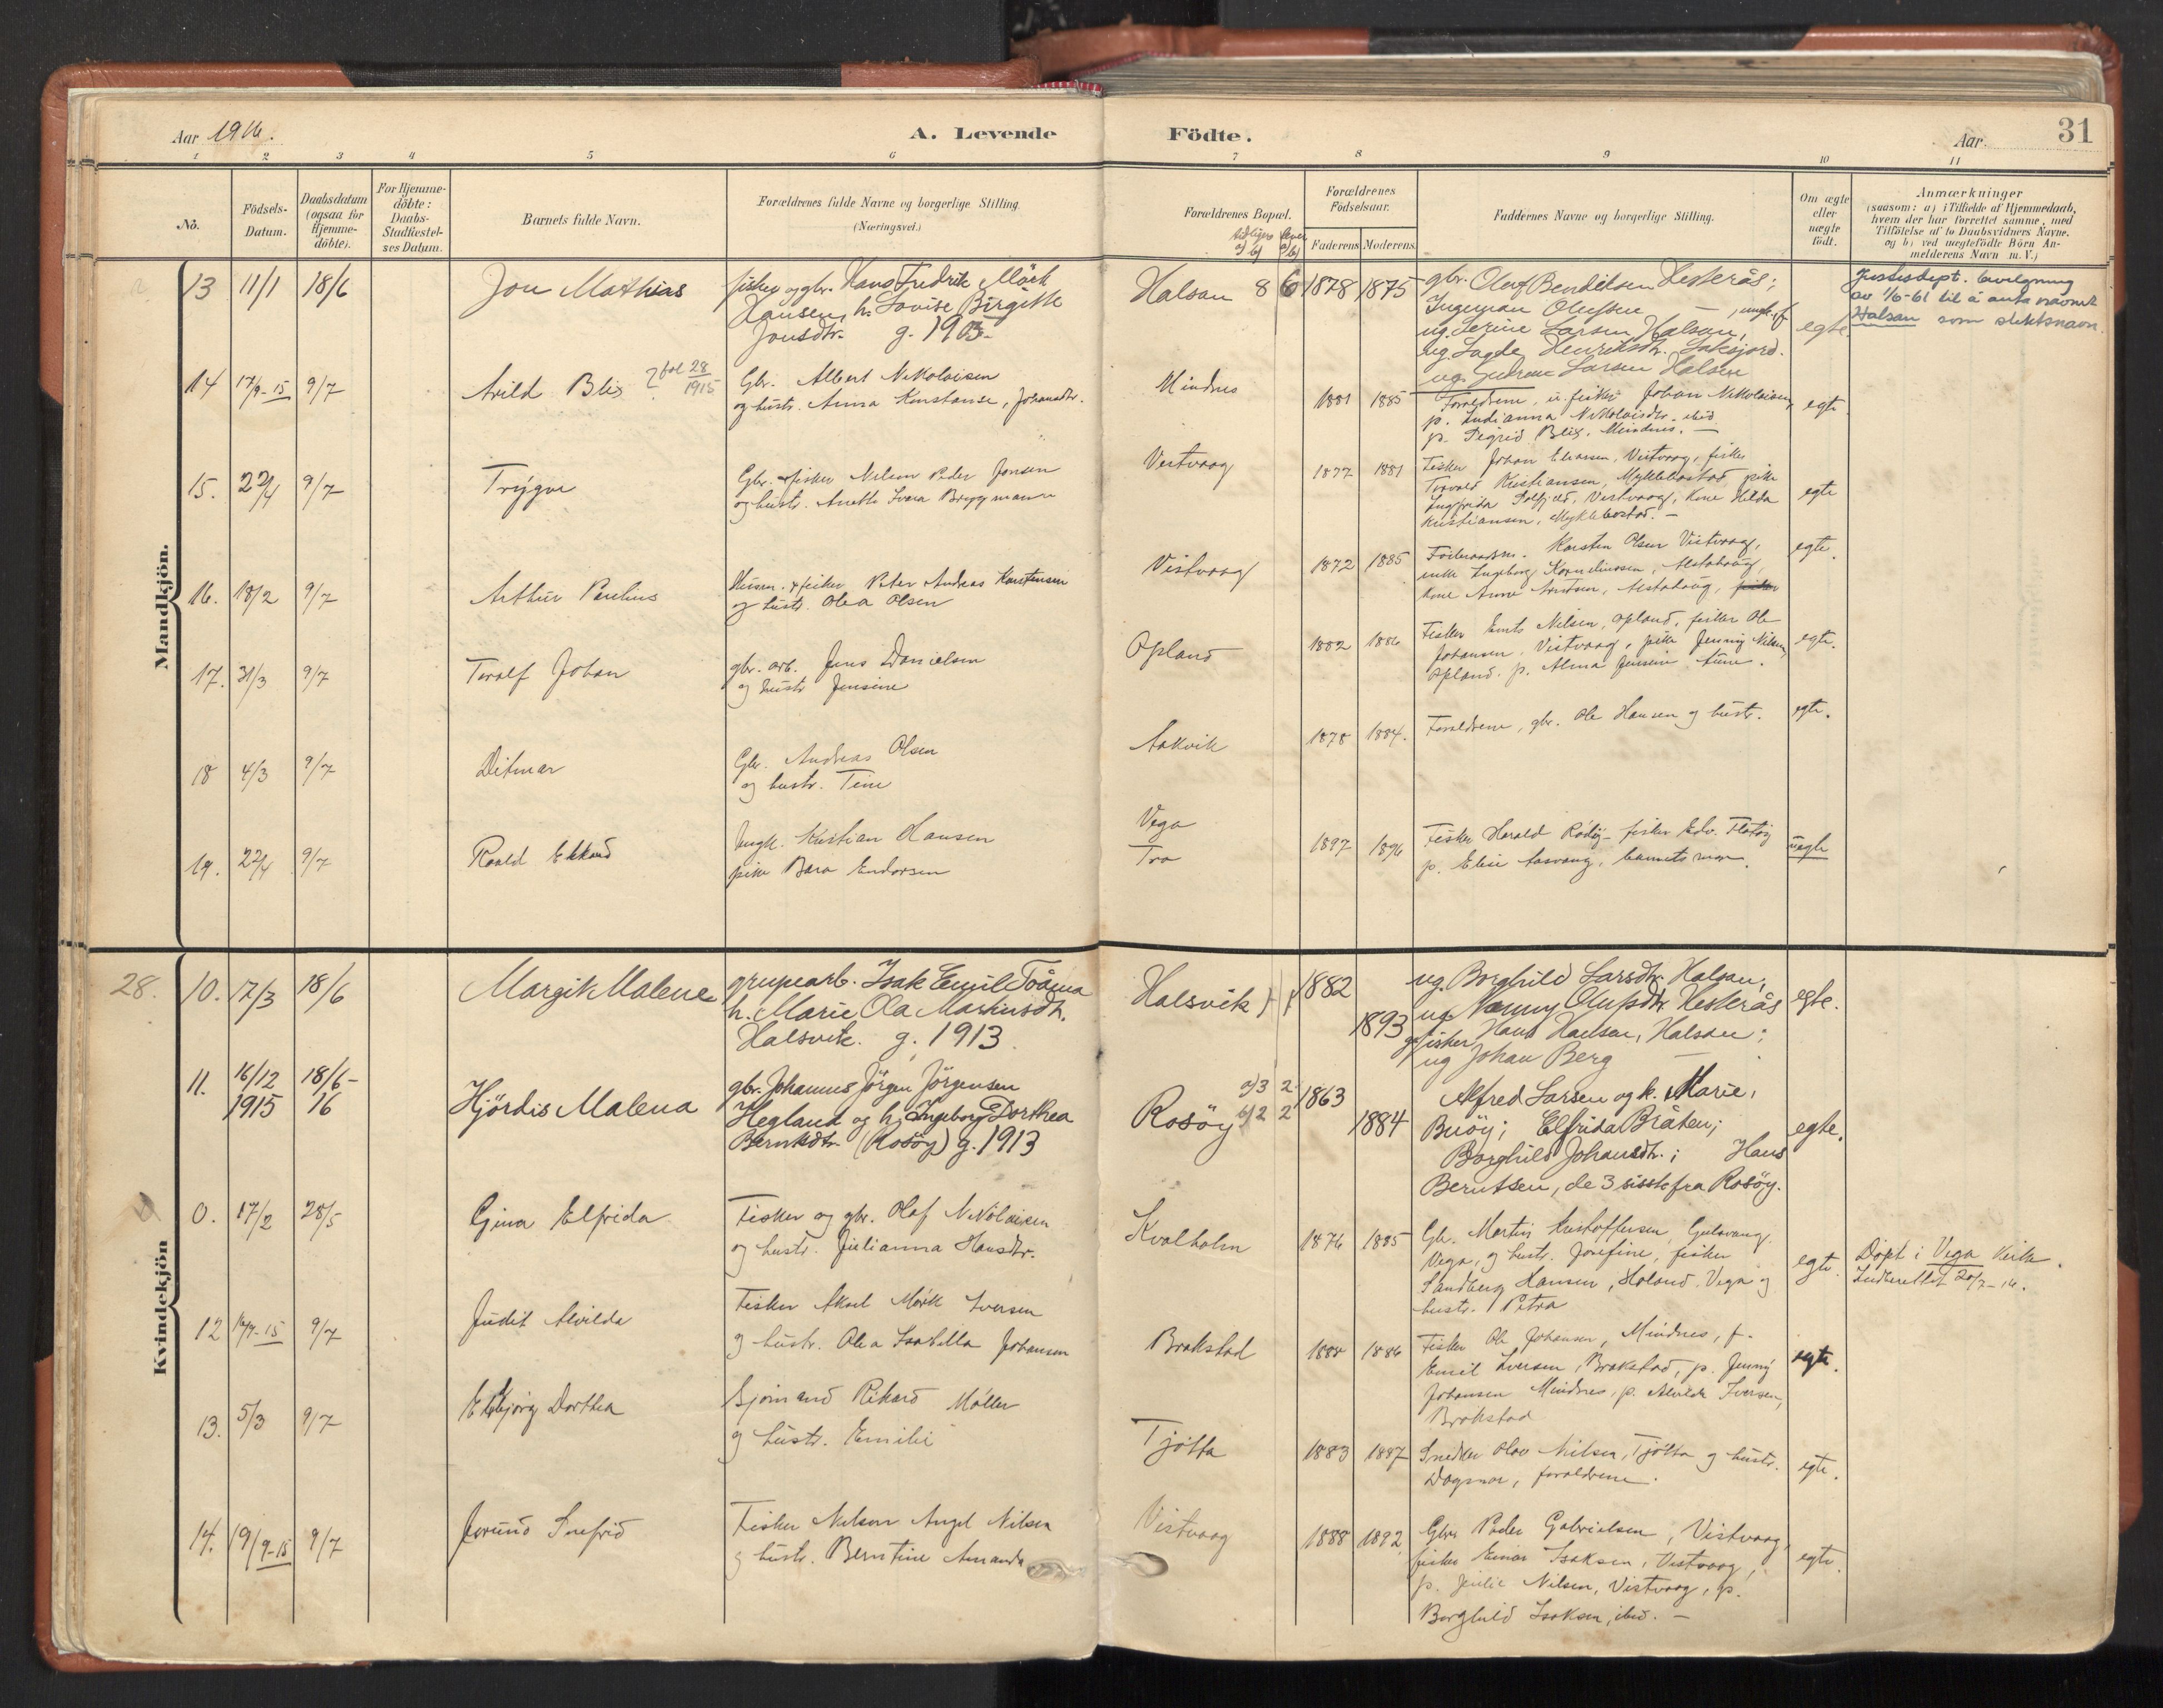 Aar 1916.
A. Levende
Födte.
Aar
31
1 2 3 4 5 6 7 8 9 10 11
No.
Födsels-
Datum.
Daabsdatum
(ogsaa for
Hjemme-
döbte).
For Hjemme-
döbte:
Daabs-
Stadfæstel-
ses Datum.
Barnets fulde Navn.
Forældrenes fulde Navne og borgerlige Stilling.
(Næringsvei.)
Forældrenes Bopæl.
Forældrenes
Födselsaar.
Faderens Moderens
Faddernes Navne og borgerlige Stilling.
Om ægte
eller
uægte
födt.
Anmærkninger
(saasom: a) i Tilfælde af Hjemmedaab,
hvem der har forrettet samme, med
Tilföielse af to Daabsvidners Navne,
og b) ved uægtefödte Börn An-
melderens Navn m. V.)
Mandkjön.
13 11/1 18/6
Jon Mathias
fisker og gbr. Hans Fredrik Mörk
Hansen, h. Lovise Birgitte
Jonsdtr. g. 1905
Halsan 8 6 1878 1875
gbr. Oluf Bendiksen Hesterås;
Ingeman Olufsen
ug. Serine Larsen Halsan,
ug. Henriksdtr.
ug. Larsen Halsan
egte.
Justisdept. bevilgning
av 1/6-61 til å anta navnet
Halsan som slektsnavn.
14 17/9-15 9/7
Arild Blix
28
1915
Gbr. Albert Nikolaisen
og hustr. Anna Konstanse, Johansdtr.
Mindnes
1881 1885
Forældrene, fisker Johan Nikolaisen
p. Nikolaisdtr. ibid
p. Sigrid Blix, Mindnes. —
egte
15. 22/4 9/7
Trygve
Gbr. & fisker Nelson Peder Jensen
og hustr. Anette Bryggmann
Vestvaag
1877 1881
Fisker Johan Eliassen, Vistvaag, fisker
Torvald Kristiansen, Myklebostad, pike
Vestvaag, kone Hilda
Kristiansen, Myklebostad. —
egte
16. 18/2 9/7
Arthur Paulius
& fisker Peter Andreas Karstensen
og hustr. Olea Olsen
Vistvaag
1872 1885
Karsten Olsen Vistvaag,
enke Ingeborg Korneliussen, Alstahaug,
kone Anne Arntsen, Alstahaug,
egte.
17. 31/3 9/7
Toralf Johan
gbr. arb. Jens Danielsen
og hustr Jensine
Opland
1882 1886
Fisker Nilsen, Opland, fisker Ole
Johansen, Vistvaag, pike Jenny Nilsen,
Opland. p. Alma Jensine
egte.
18 4/3 9/7
Ditmar
Gbr. Andreas Olsen
og hustr. Tine
Aakvik
1878 1884.
Forældrene, gbr. Ole Hansen og hustr.
egte.
19. 22/4 9/7
Roald
Ungk. Kristian Hansen
pike Bara Endorsen
Vega
Tro
1897 1896
Fisker Harald Rödöy fisker Edv. Flotöy
p. Elise Aasvang, barnets mor.
uegte
Kvindekjön
28.
10. 17/3 18/6
Margit Malene
grupearb. Isak Emil Toåma
h. Marie Ola Markusdtr.
Halsvik. g. 1913.
Halsvik
1882
1893
ug. Borghild Larsdtr. Halsan,
ug. Nanny Olufsdtr. Hesterås
fisker Hans Hansen, Halsan;
ug Johan Berg
egte.
11. 16/12
1915
18/6-
16
Hjördis Malena
gbr. Johannes Jörgen Jörgensen
Hegland og h. Ingeborg Dorthea
Berntsdtr. (Rosöy) g. 1913
Rosöy
a)3 2
b)2 2
1863
1884
Alfred Larsen og k. Marie,
Buöy; Elfrida Bråten;
Borghild Johansdtr.; Hans
Berntsen, de 3 sisste fra Rosöy.
egte.
0. 17/2 28/5
Gina Elfrida
Fisker og gbr. Olaf Nikolaisen
og hustr. Julianna Hansdtr.
Kvalholm
1876 1885
Gbr. Martin Kristoffersen, Gulsvaag,
Vega, og hustr. Josefine, fisker
Sandberg Hansen, Holand, Vega og
hustr. Petra
egte.
Döpt i Vega Kirke.
Indberettet 20/7-16.
12 16/9-15 9/7
Judit Alvilda
Fisker Aksel Mörk Iversen
og hustr. Olea Isabella Johansen
Brakstad
1888 1886
Fisker Ole Johansen, Mindnes, f.
Emil Iversen, Brakstad, p. Jenny
Johansen Mindnes, p. Alvilde Iversen,
Brakstad
egte.
13. 5/3 9/7
Dorthea
Sjömand Rikard Möller
og hustr. Emilie
Tjötta
1883 1887
Snedker Olav Nilsen, Tjötta og hustr.
Dagmar, forældrene.
egte.
14. 19/9-15 9/7
Jorund Snefrid
Fisker Nelson Angel Nilsen
og hustr. Berntine Amanda
Vistvaag
1888 1892
Gbr. Peder Gabrielsen, Vistvaag,
fisker Einar Isaksen, Vistvaag,
p. Julie Nilsen, Vistvaag, p.
Borghild Isaksen, ibid. —
egte.